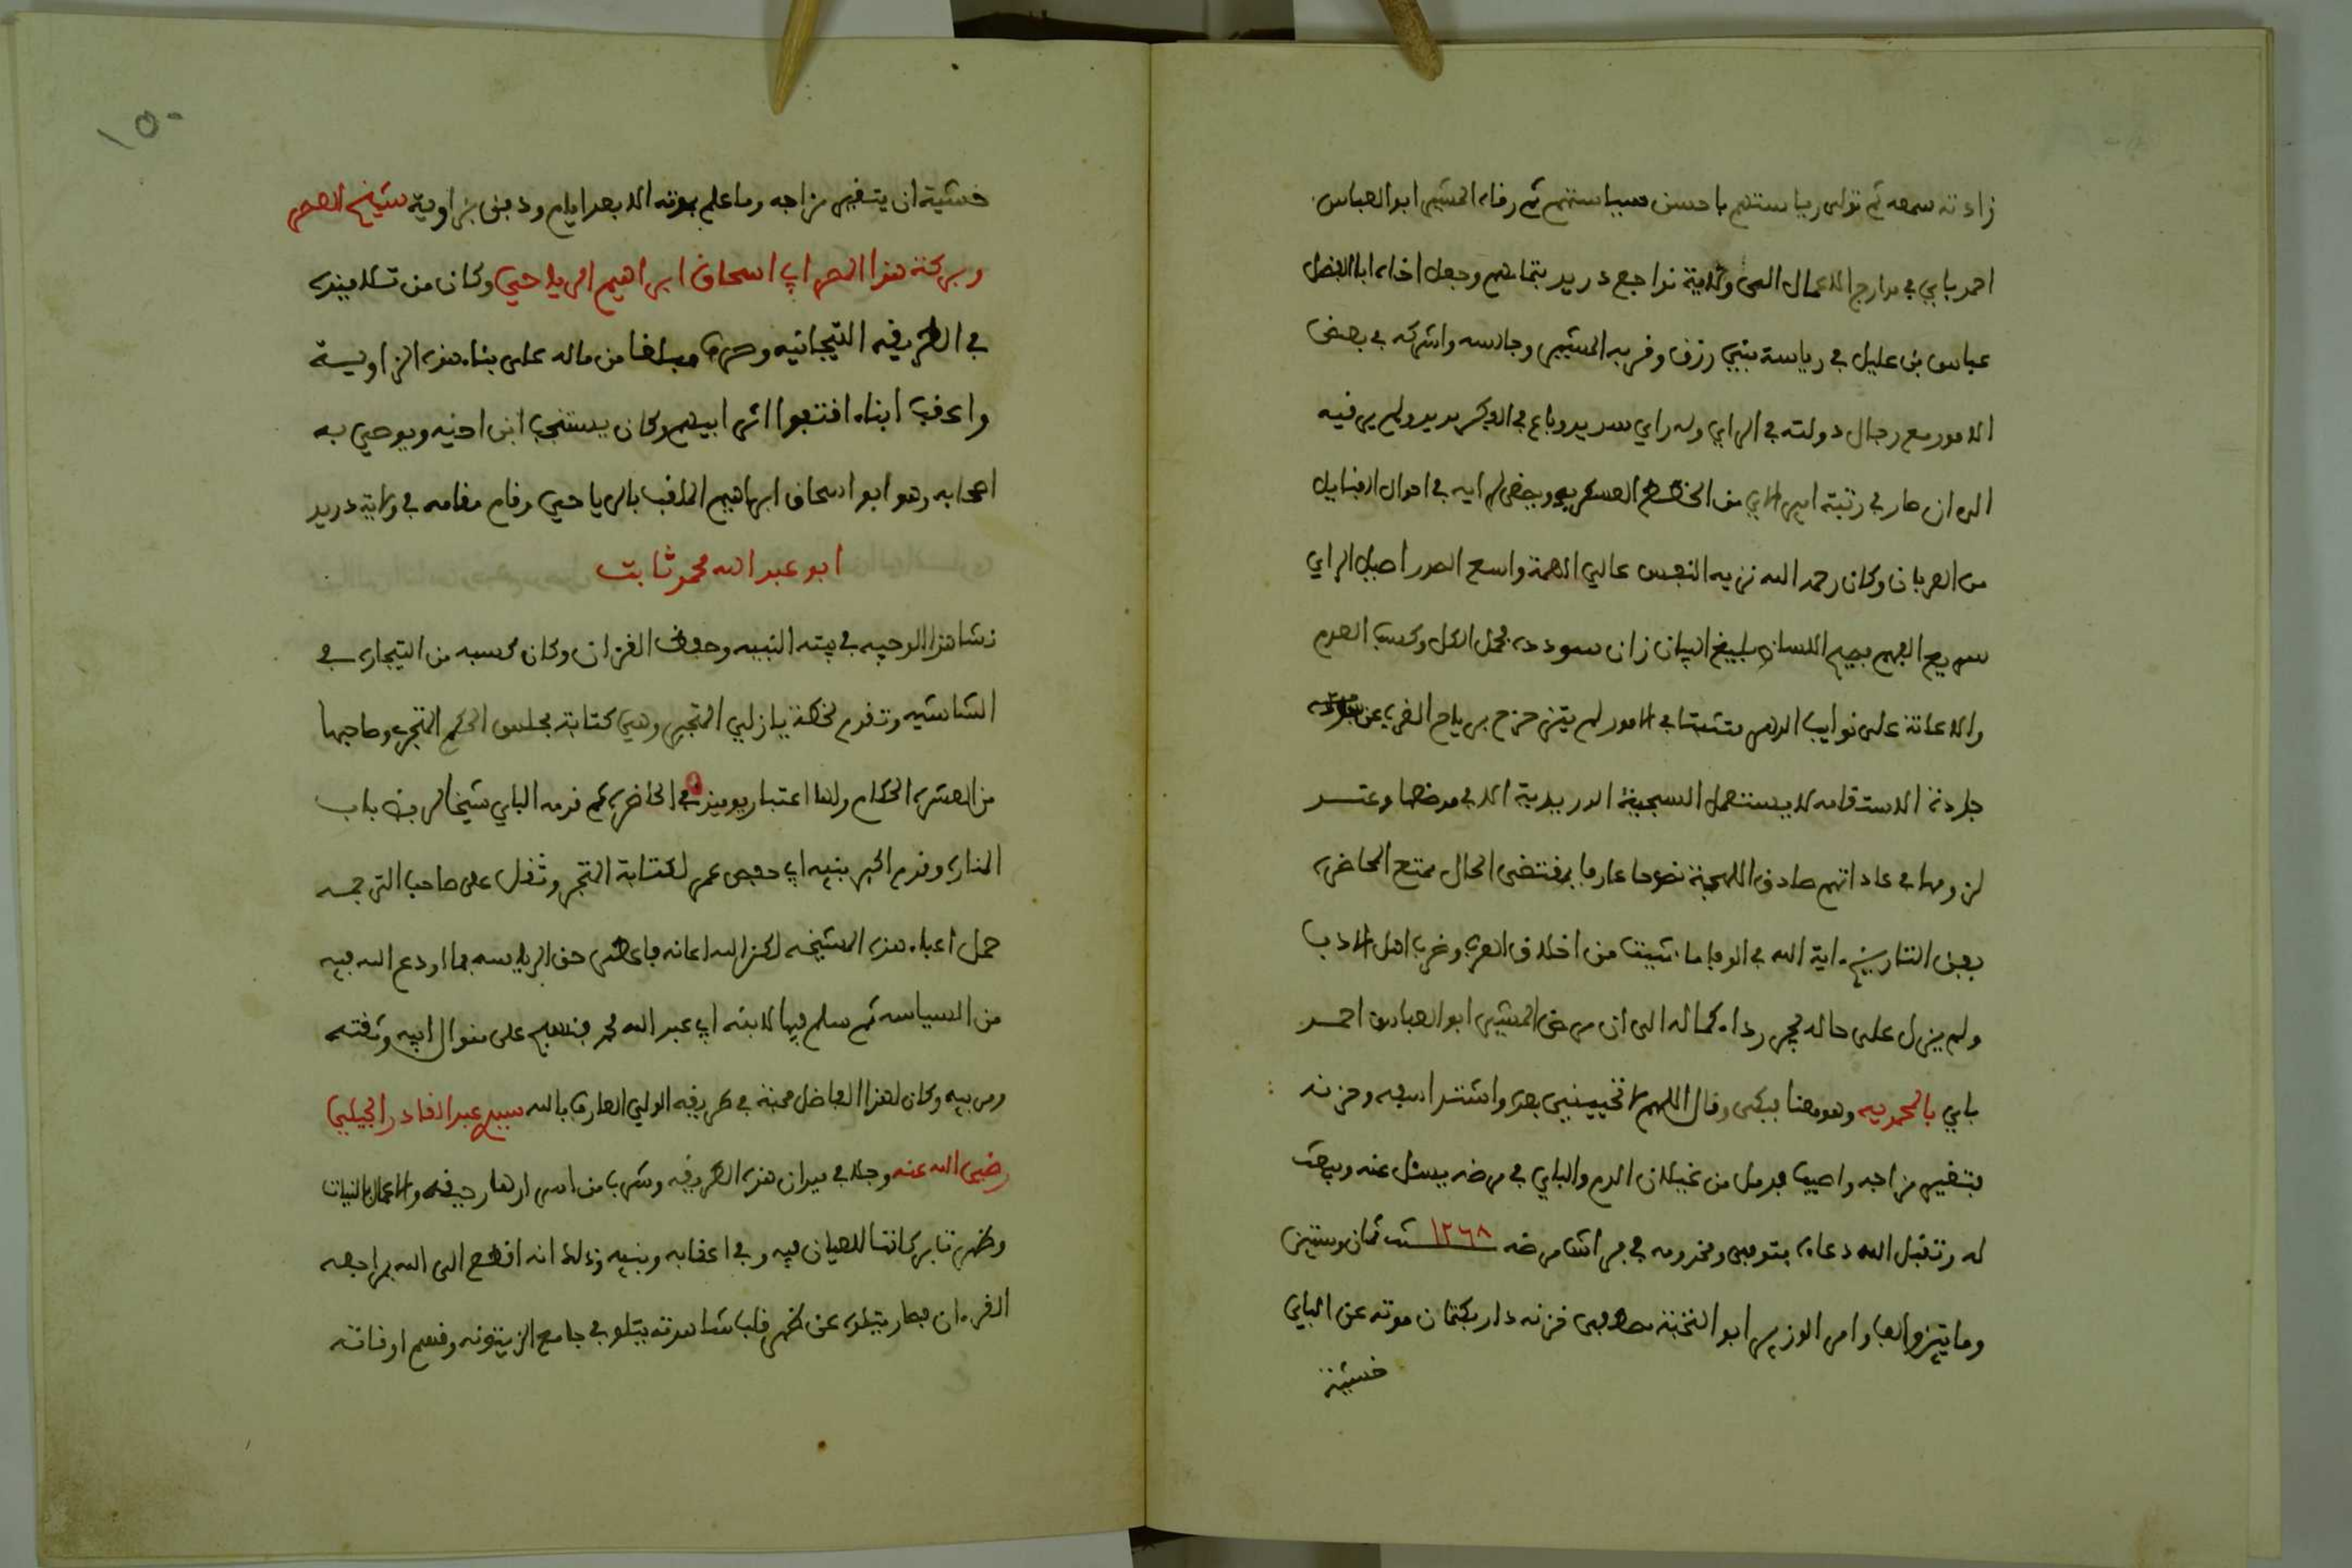 زادته سمعه ثم تولى رياستهم باحسن سياستهم ثم رقاه المشير ابو العباس
احمد باي في مدارج الاعمال الى ولاية نواجع دريد بتمامهم وجعل اخاه ابا الفضل
عباس بن عليل في رياسة بنيي رزق وقربه المشير وجالسه واشركه في بعض
الامور مع رجال دولته في الراي وله راي سديد وباع في الفكر مديد ولم يرفيه
الى ان صار في رتبة امير الاي من الخطط العسكريه ويصغى لرايه في احوال القبايل
من العربان وكان رحمه الله نزيه النفس عالي الهمة واسع الصدر اصيل الراي
سريع الفهم فصيح اللسان بليغ البيان زان سودده بحمل الكل وكسب العدم
والاعانة على نوايب الدهر متثبتا في الامور لم يتزحزح برياح الغرة عن
جادة الاستقامه لا يستعمل السجية الدريدية الا في موضعها وعند
لزومها في عاداتهم صادق اللهجة نصوحا عارفا بمقتضى الحال ممتع المحاضرة
بفن التاريخ اية الله في الوفا ما شيت من اخلاق العرب وغرب اهل الادب
ولم يزل على حاله يجر رداء كماله الى ان مرض المشير ابو العباس احمد
باي بالمحمديه وهو معنا فبكى وقال اللهم لا تحييني بعده واشتد اسفه وحزنه
فتغير مزاجه واصيب بدمل من غليان الدم والباي في مرضه يسئل عنه ويبعث
له وتقبل الله دعاءه فتوفى ومخدومه في فراش مرضه ١٢٦٨ سنة ثمان وستين
وما يتين والف وامر الوزير ابو النخبة مصطفى خزنه دار بكتمان موته عن الباي
خشية
١٥٠
خشية ان يتغير مزاجه وما علم بموته الا بعد ايام ودفن بزاوية شيخ العصر
وبركة هذا المصر ابي اسحاق ابراهيم الرياحي وكان من تلاميذه
في الطريقه التيجانيه وصرف مبلغا من ماله على بناء هذه الزاوية
واعقب ابناء اقتفوا اثر ابيهم وكان يستنجب ابن اخيه ويوصي به
اصحابه وهو ابو اسحاق ابراهيم الملقب بالرياحي وقام مقامه في ولاية دريد
ابو عبد الله محمد ثابت
نشا هذا الوجيه في بيته النبيه وحفظ القران وكان كسبه من التجارة في
الشاشيه وتقدم لخطة يازلي المتجر وهي كتابة مجلس الحكم المتجري وصاحبها
من العشرة الحكام ولها اعتبار يوميذ في الحاضرة ثم قدمه الباي شيخا لربض باب
المنارة وقدم اكبر بنيه ابي حفص عمر لكتابة المتجر وثقل على صاحب الترجمه
حمل اعباء هذه المشيخه لكن الله اعانه فاعطى حق الرياسه بما اودع الله فيه
من السياسه ثم سلم فيها لابنه ابي عبد الله محمد فنسج على منوال ابيه وثقته
ومربيه وكان لهذا الفاضل محبة في طريقه الولي العارف بالله سيدي عبد القادر الجيلي
رضي الله عنه وجلا في ميدان هذه الطريقه وشرب من اس ازهار رحيقه والاعمال بالنيات
وظهرتا بركاتها للعيان فيه وفي اعقابه وبنيه وذلك انه انقطع الى الله بمراجعه
القرءان فصار يتلوه عن ظهر قلب شاهدته يتلو في جامع الزيتونه وقسم اوقاته